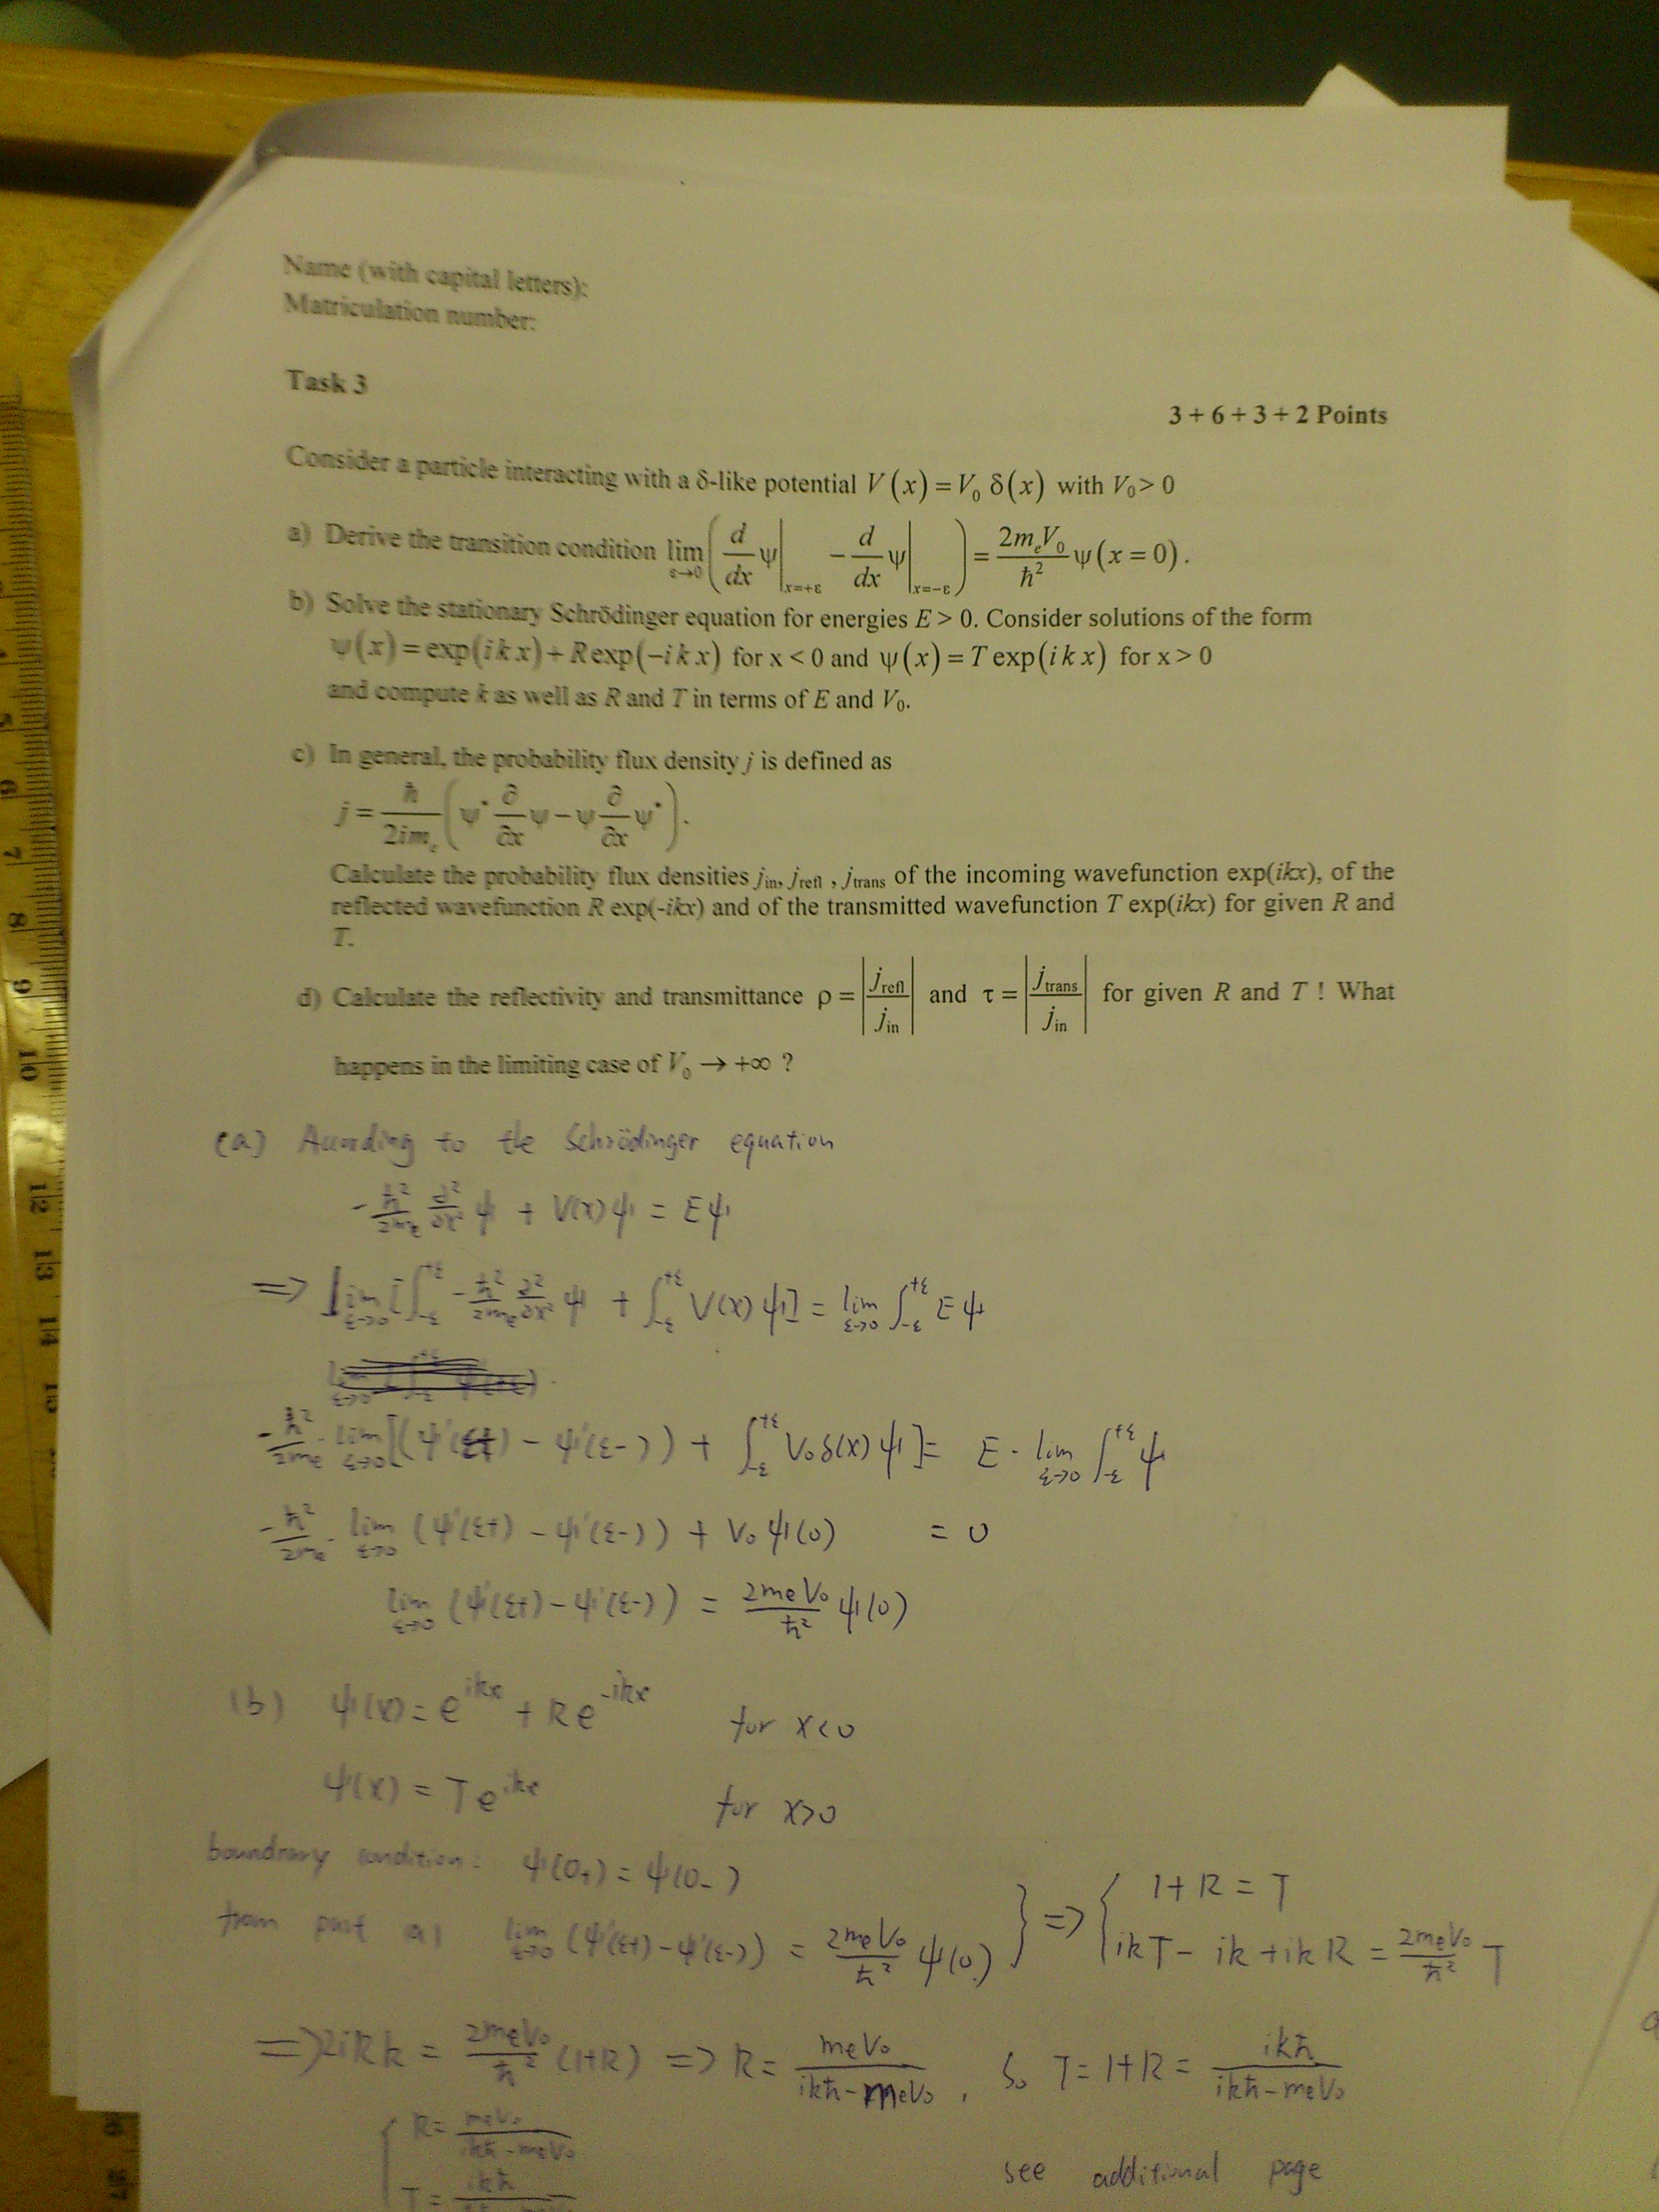 Name (with capital letters):
Matriculation number:
Task 3
3 + 6 + 3 + 2 Points
Consider a particle interacting with a δ-like potential V(x) = V₀ δ(x) with V₀ > 0
a) Derive the transition condition lim ε→0 ( d/dx ψ |x=+ε − d/dx ψ |x=−ε ) = 2mₑV₀/ħ² ψ(x = 0).
b) Solve the stationary Schrödinger equation for energies E > 0. Consider solutions of the form
ψ(x) = exp(ikx) + R exp(−ikx) for x < 0 and ψ(x) = T exp(ikx) for x > 0
and compute k as well as R and T in terms of E and V₀.
c) In general, the probability flux density j is defined as
j = ħ/2imₑ ( ψ* ∂/∂x ψ − ψ ∂/∂x ψ* ).
Calculate the probability flux densities jin, jrefl , jtrans of the incoming wavefunction exp(ikx), of the
reflected wavefunction R exp(-ikx) and of the transmitted wavefunction T exp(ikx) for given R and
T.
d) Calculate the reflectivity and transmittance ρ = | jrefl / jin | and τ = | jtrans / jin | for given R and T ! What
happens in the limiting case of V₀ → +∞ ?
(a) According to the Schrödinger equation
− ħ²/2me ∂²/∂x² ψ + V(x)ψ = Eψ
=> lim ε→0 [∫−ε^+ε − ħ²/2me ∂²/∂x² ψ + ∫−ε^+ε V(x) ψ] = lim ε→0 ∫−ε^+ε Eψ
− ħ²/2me · lim ε→0 [(ψ'(ε+) − ψ'(ε−)) + ∫−ε^+ε V₀δ(x)ψ] = E · lim ε→0 ∫−ε^+ε ψ
− ħ²/2me · lim ε→0 (ψ'(ε+) − ψ'(ε−)) + V₀ψ(0) = 0
lim ε→0 (ψ'(ε+) − ψ'(ε−)) = 2meV₀/ħ² ψ(0)
(b) ψ(x) = e^ikx + Re^−ikx for x<0
ψ(x) = T e^ikx for x>0
boundrary condition: ψ(0₊) = ψ(0₋)
from part a) lim ε→0 (ψ'(ε+) − ψ'(ε−)) = 2meV₀/ħ² ψ(0) } => { 1+R = T
ikT − ik + ikR = 2meV₀/ħ² T
=> 2iRk = 2meV₀/ħ² (1+R) => R = meV₀/ikħ−meV₀ , So T = 1+R = ikħ/ikħ−meV₀
{ R = meV₀/ikħ−meV₀
T = ikħ
see additional page